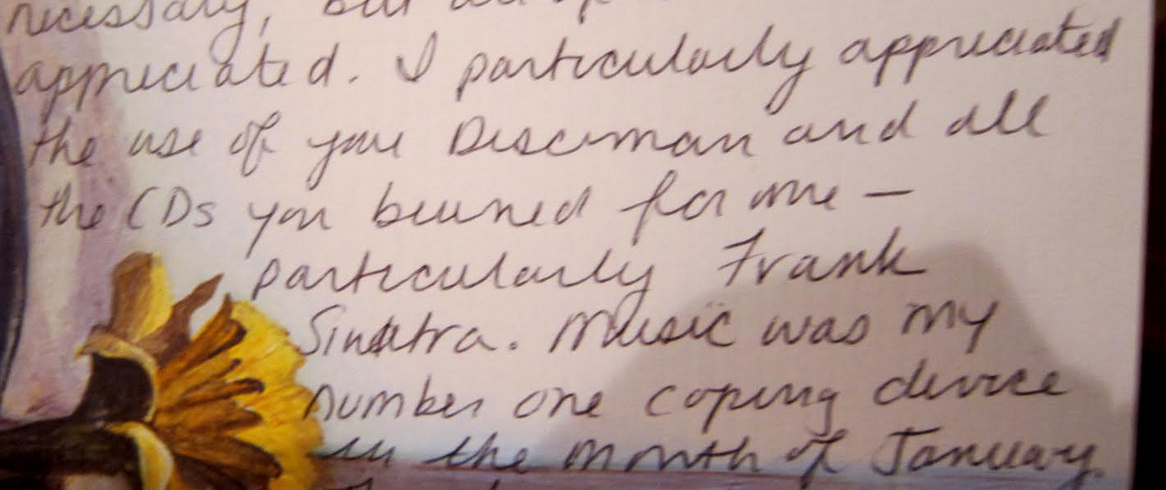 necessary, but all of
appreciated. I particularly appreciated
the use of your Discman and all
the CDs you burned for me —
particularly Frank
Sinatra. Music was my
number one coping device
in the month of January